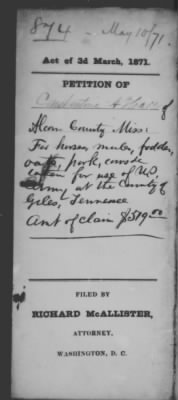 874 - May 10/71.
Act of 3d March, 1871.
PETITION OF
Constantine A. Hall of
Alcorn County Miss:
For horses, mules, fodder,
oats, pork, corn &c
taken for use of U.S.
Army, at the County of
Giles, Tennessee
Amt of claim $519.00
FILED BY
RICHARD McALLISTER,
ATTORNEY,
WASHINGTON, D. C.